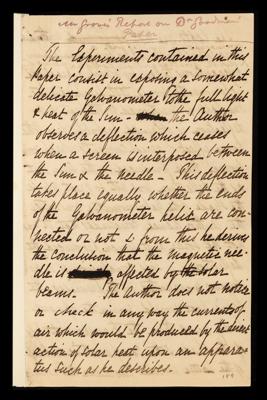 Mr Grove's Report on Dr Goodman's
Paper
The Experiments contained in this
Paper consist in exposing a somewhat
delicate Galvanometer to the full light
& heat of the Sun - the Author
observes a deflection which ceases
when a screen is interposed between
the Sun & the needle - This deflection
takes place equally whether the ends
of the Galvanometer helix are con-
nected or not & from this he derives
the conclusion that the magnetic nee-
dle is affected by the solar
beams. The Author does not notice
or check in any way the currents of
air which would be produced by the direct
action of solar heat upon an appara-
tus such as he describes.